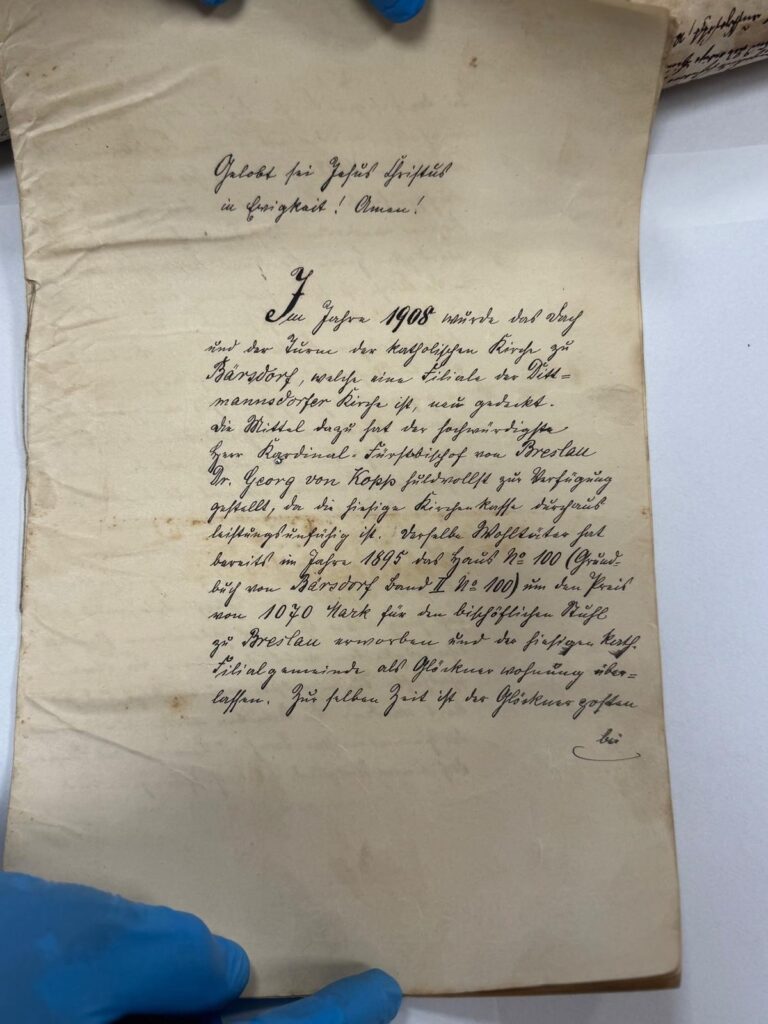 Gelobt sei Jesus Christus
in Ewigkeit! Amen!
Im Jahre 1908 wurde das Dach
und der Turm der katholischen Kirche zu
Bärsdorf, welche eine Filiale der Ditt=
mannsdorfer Kirche ist, neu gedeckt.
Die Mittel dazu hat der hochwürdigste
Herr Kardinal-Fürstbischof von Breslau
Dr. Georg von Kopp huldvollst zur Verfügung
gestellt, da die hiesige Kirchenkasse durchaus
leistungsunfähig ist. Derselbe Wohltäter hat
bereits im Jahre 1895 das Haus No 100 (Grund-
buch von Bärsdorf Band II No 100) um den Preis
von 1070 Mark für den bischöflichen Stuhl
zu Breslau erworben und der hiesigen kath.
Filialgemeinde als Glöcknerwohnung über=
lassen. Zur selben Zeit ist der Glöcknerposten
bei